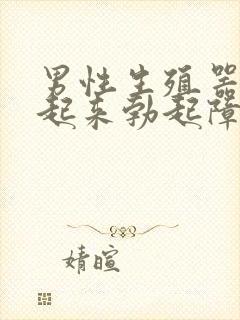 男性生殖器
起来勃起障
婧暄